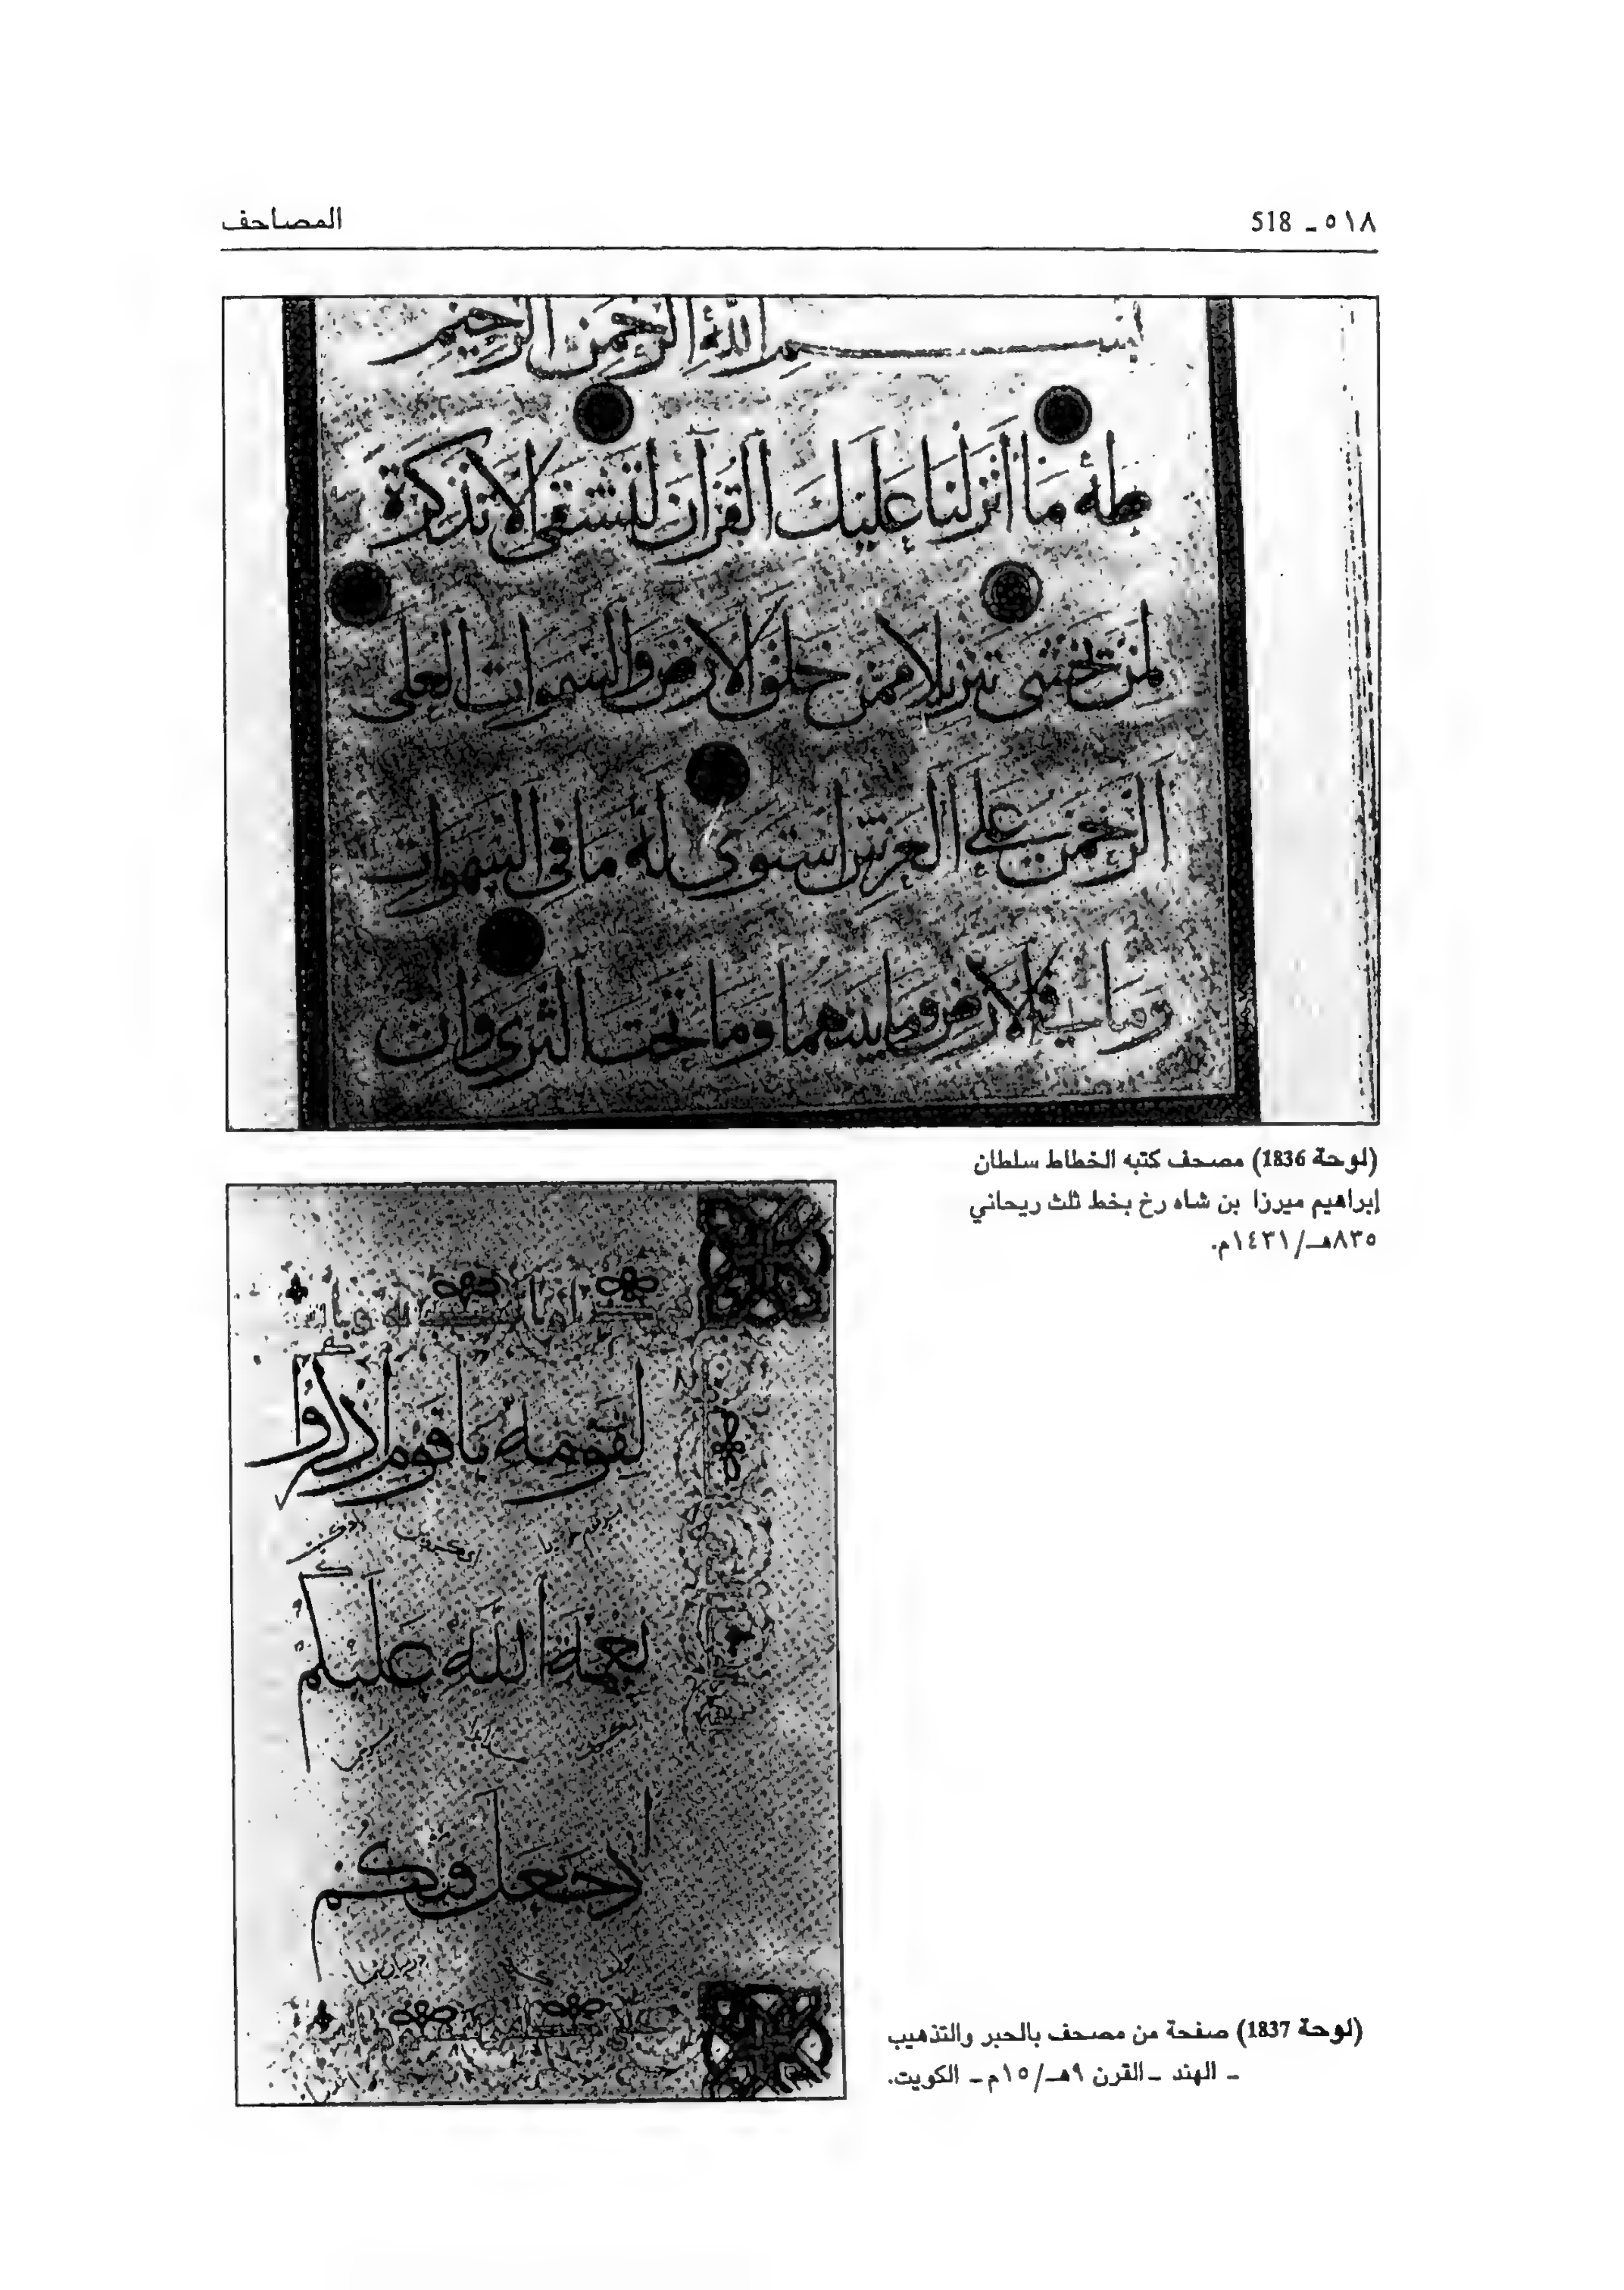 ٥١٨ - 518
المصاحف
بسم الله الرحمن الرحيم
طه ما أنزلنا عليك القرآن لتشقى إلا تذكرة
لمن يخشى تنزيلا ممن خلق الارض والسموات العلى
الرحمن على العرش استوى له ما في السموات
وما في الارض وما بينهما وما تحت الثرى وان
(لوحة 1836) مصحف كتبه الخطاط سلطان
إبراهيم ميرزا بن شاه رخ بخط ثلث ريحاني
٨٣٥هـ/١٤٣١م.
لقومه يا قوم اذكروا
نعمة الله عليكم
اذ جعل فيكم
(لوحة 1837) صفحة من مصحف بالحبر والتذهيب
- الهند - القرن ٩هـ/١٥م - الكويت.